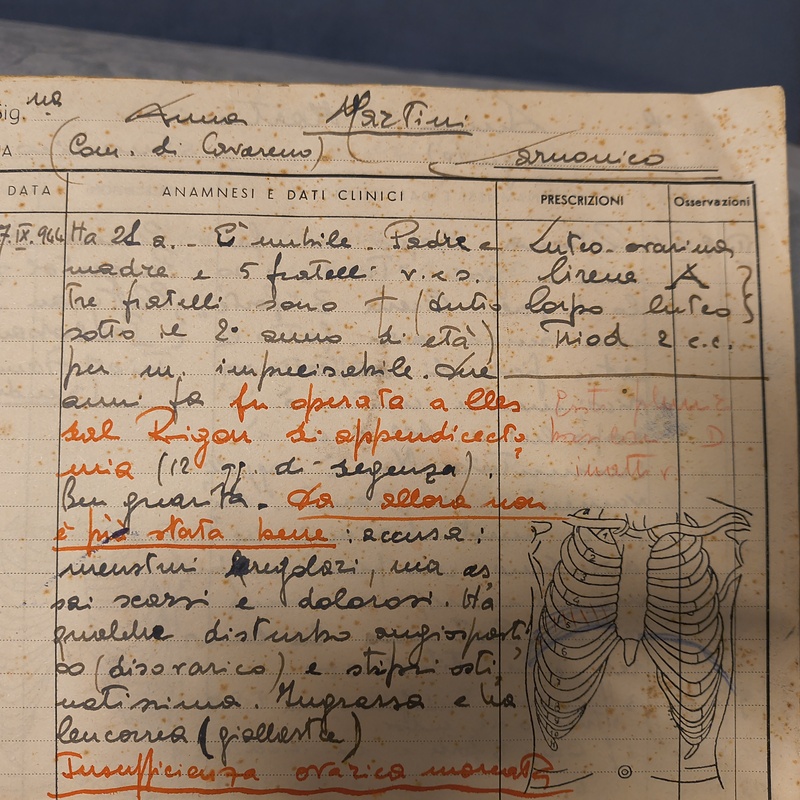 Sig.na Anna Martini
A (Com. di Cavareno) Sarnonico
DATA ANAMNESI E DATI CLINICI PRESCRIZIONI Osservazioni
7.IX.944 Ha 21 a. - È nubile - Padre e
madre e 5 fratelli v. e s.
Tre fratelli sono † (tutti
sotto il 2° anno di età)
per m. imprecisabile. Due
anni fa fu operata a Cles
dal Rigon di appendicecto
mia (12 gg. di degenza).
Ben guarita. Da allora non
è più stata bene: accusa:
menstrui irregolari, ma as
sai scarsi e dolorosi. Ha
qualche disturbo angiospasti
co (disovarico) e stipsi osti
natissima. Ingrassa e ha
leucorrea (giallastra)
Insufficienza ovarica
Luteo-ovarina
Sirena A
Corpo luteo
Triod 2 c.c.
D